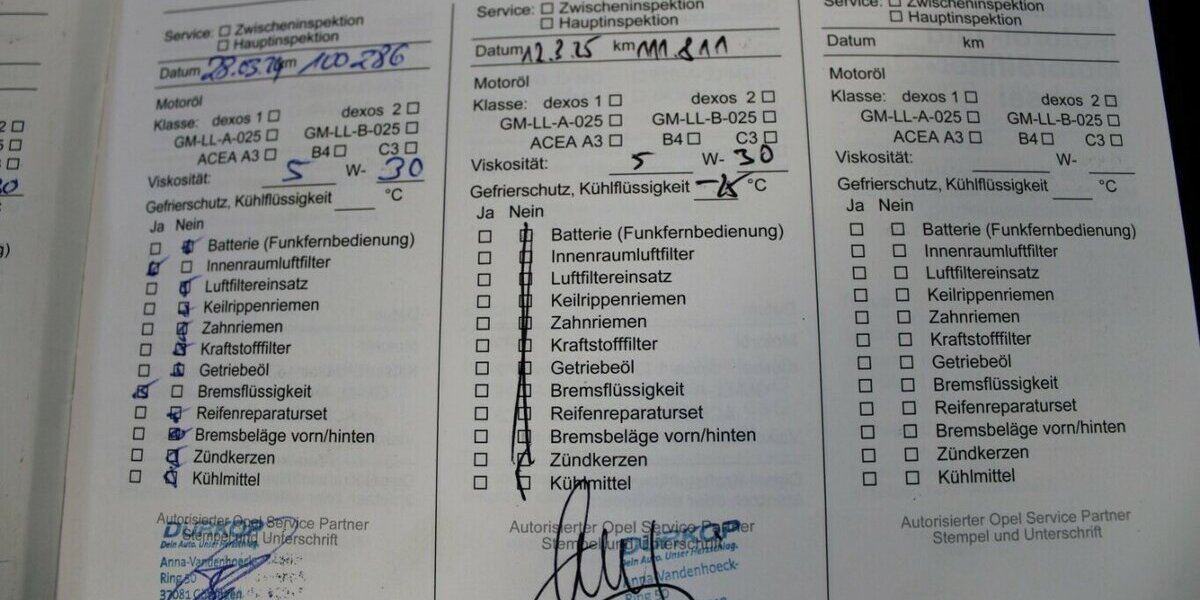 Service: Zwischeninspektion
Hauptinspektion
Datum 28.03.24 km 100286
Motoröl
Klasse: dexos 1 dexos 2
GM-LL-A-025 GM-LL-B-025
ACEA A3 B4 C3
Viskosität: 5 W- 30
Gefrierschutz, Kühlflüssigkeit °C
Ja Nein
Batterie (Funkfernbedienung)
Innenraumluftfilter
Luftfiltereinsatz
Keilrippenriemen
Zahnriemen
Kraftstofffilter
Getriebeöl
Bremsflüssigkeit
Reifenreparaturset
Bremsbeläge vorn/hinten
Zündkerzen
Kühlmittel
Autorisierter Opel Service Partner
Stempel und Unterschrift
Dein Auto. Unser Herzschlag.
Anna-Vandenhoeck-
Ring 50
37081
Service: Zwischeninspektion
Hauptinspektion
Datum 12.3.25 km 111.811
Motoröl
Klasse: dexos 1 dexos 2
GM-LL-A-025 GM-LL-B-025
ACEA A3 B4 C3
Viskosität: 5 W- 30
Gefrierschutz, Kühlflüssigkeit -25 °C
Ja Nein
Batterie (Funkfernbedienung)
Innenraumluftfilter
Luftfiltereinsatz
Keilrippenriemen
Zahnriemen
Kraftstofffilter
Getriebeöl
Bremsflüssigkeit
Reifenreparaturset
Bremsbeläge vorn/hinten
Zündkerzen
Kühlmittel
Autorisierter Opel Service Partner
Stempel und Unterschrift
Dein Auto. Unser Herzschlag.
Anna-Vandenhoeck-
Ring 50
Service: Zwischeninspektion
Hauptinspektion
Datum km
Motoröl
Klasse: dexos 1 dexos 2
GM-LL-A-025 GM-LL-B-025
ACEA A3 B4 C3
Viskosität: W-
Gefrierschutz, Kühlflüssigkeit °C
Ja Nein
Batterie (Funkfernbedienung)
Innenraumluftfilter
Luftfiltereinsatz
Keilrippenriemen
Zahnriemen
Kraftstofffilter
Getriebeöl
Bremsflüssigkeit
Reifenreparaturset
Bremsbeläge vorn/hinten
Zündkerzen
Kühlmittel
Autorisierter Opel Service Partner
Stempel und Unterschrift